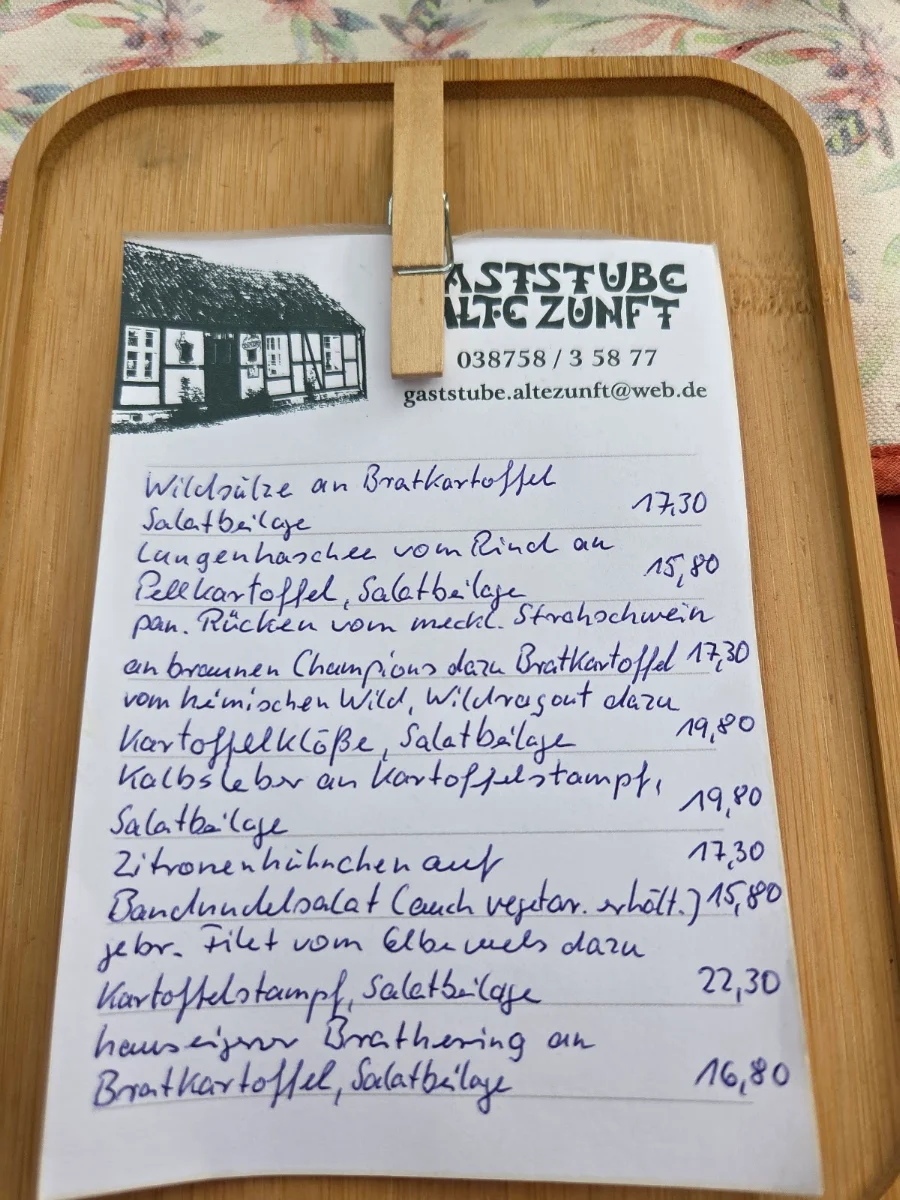 ASTSTUBE
ALTE ZUNFT
038758 / 3 58 77
gaststube.altezunft@web.de
Wildsülze an Bratkartoffel
Salatbeilage 17,30
Lungenhaschee vom Rind an
Pellkartoffel, Salatbeilage 15,80
pan. Rücken vom meckl. Strohschwein
an braunen Champions dazu Bratkartoffel 17,30
vom heimischen Wild, Wildragout dazu
Kartoffelklöße, Salatbeilage 19,80
Kalbsleber an Kartoffelstampf,
Salatbeilage 19,80
Zitronenhühnchen auf 17,30
Bandnudelsalat (auch vegetar. erhält.) 15,80
gebr. Filet vom Elbewels dazu
Kartoffelstampf, Salatbeilage 22,30
hauseigener Brathering an
Bratkartoffel, Salatbeilage 16,80